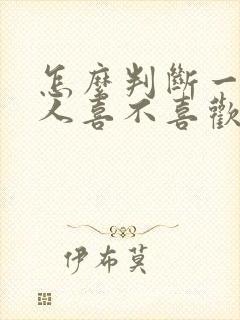 怎麼判斷一
人喜不喜歡
伊布莫